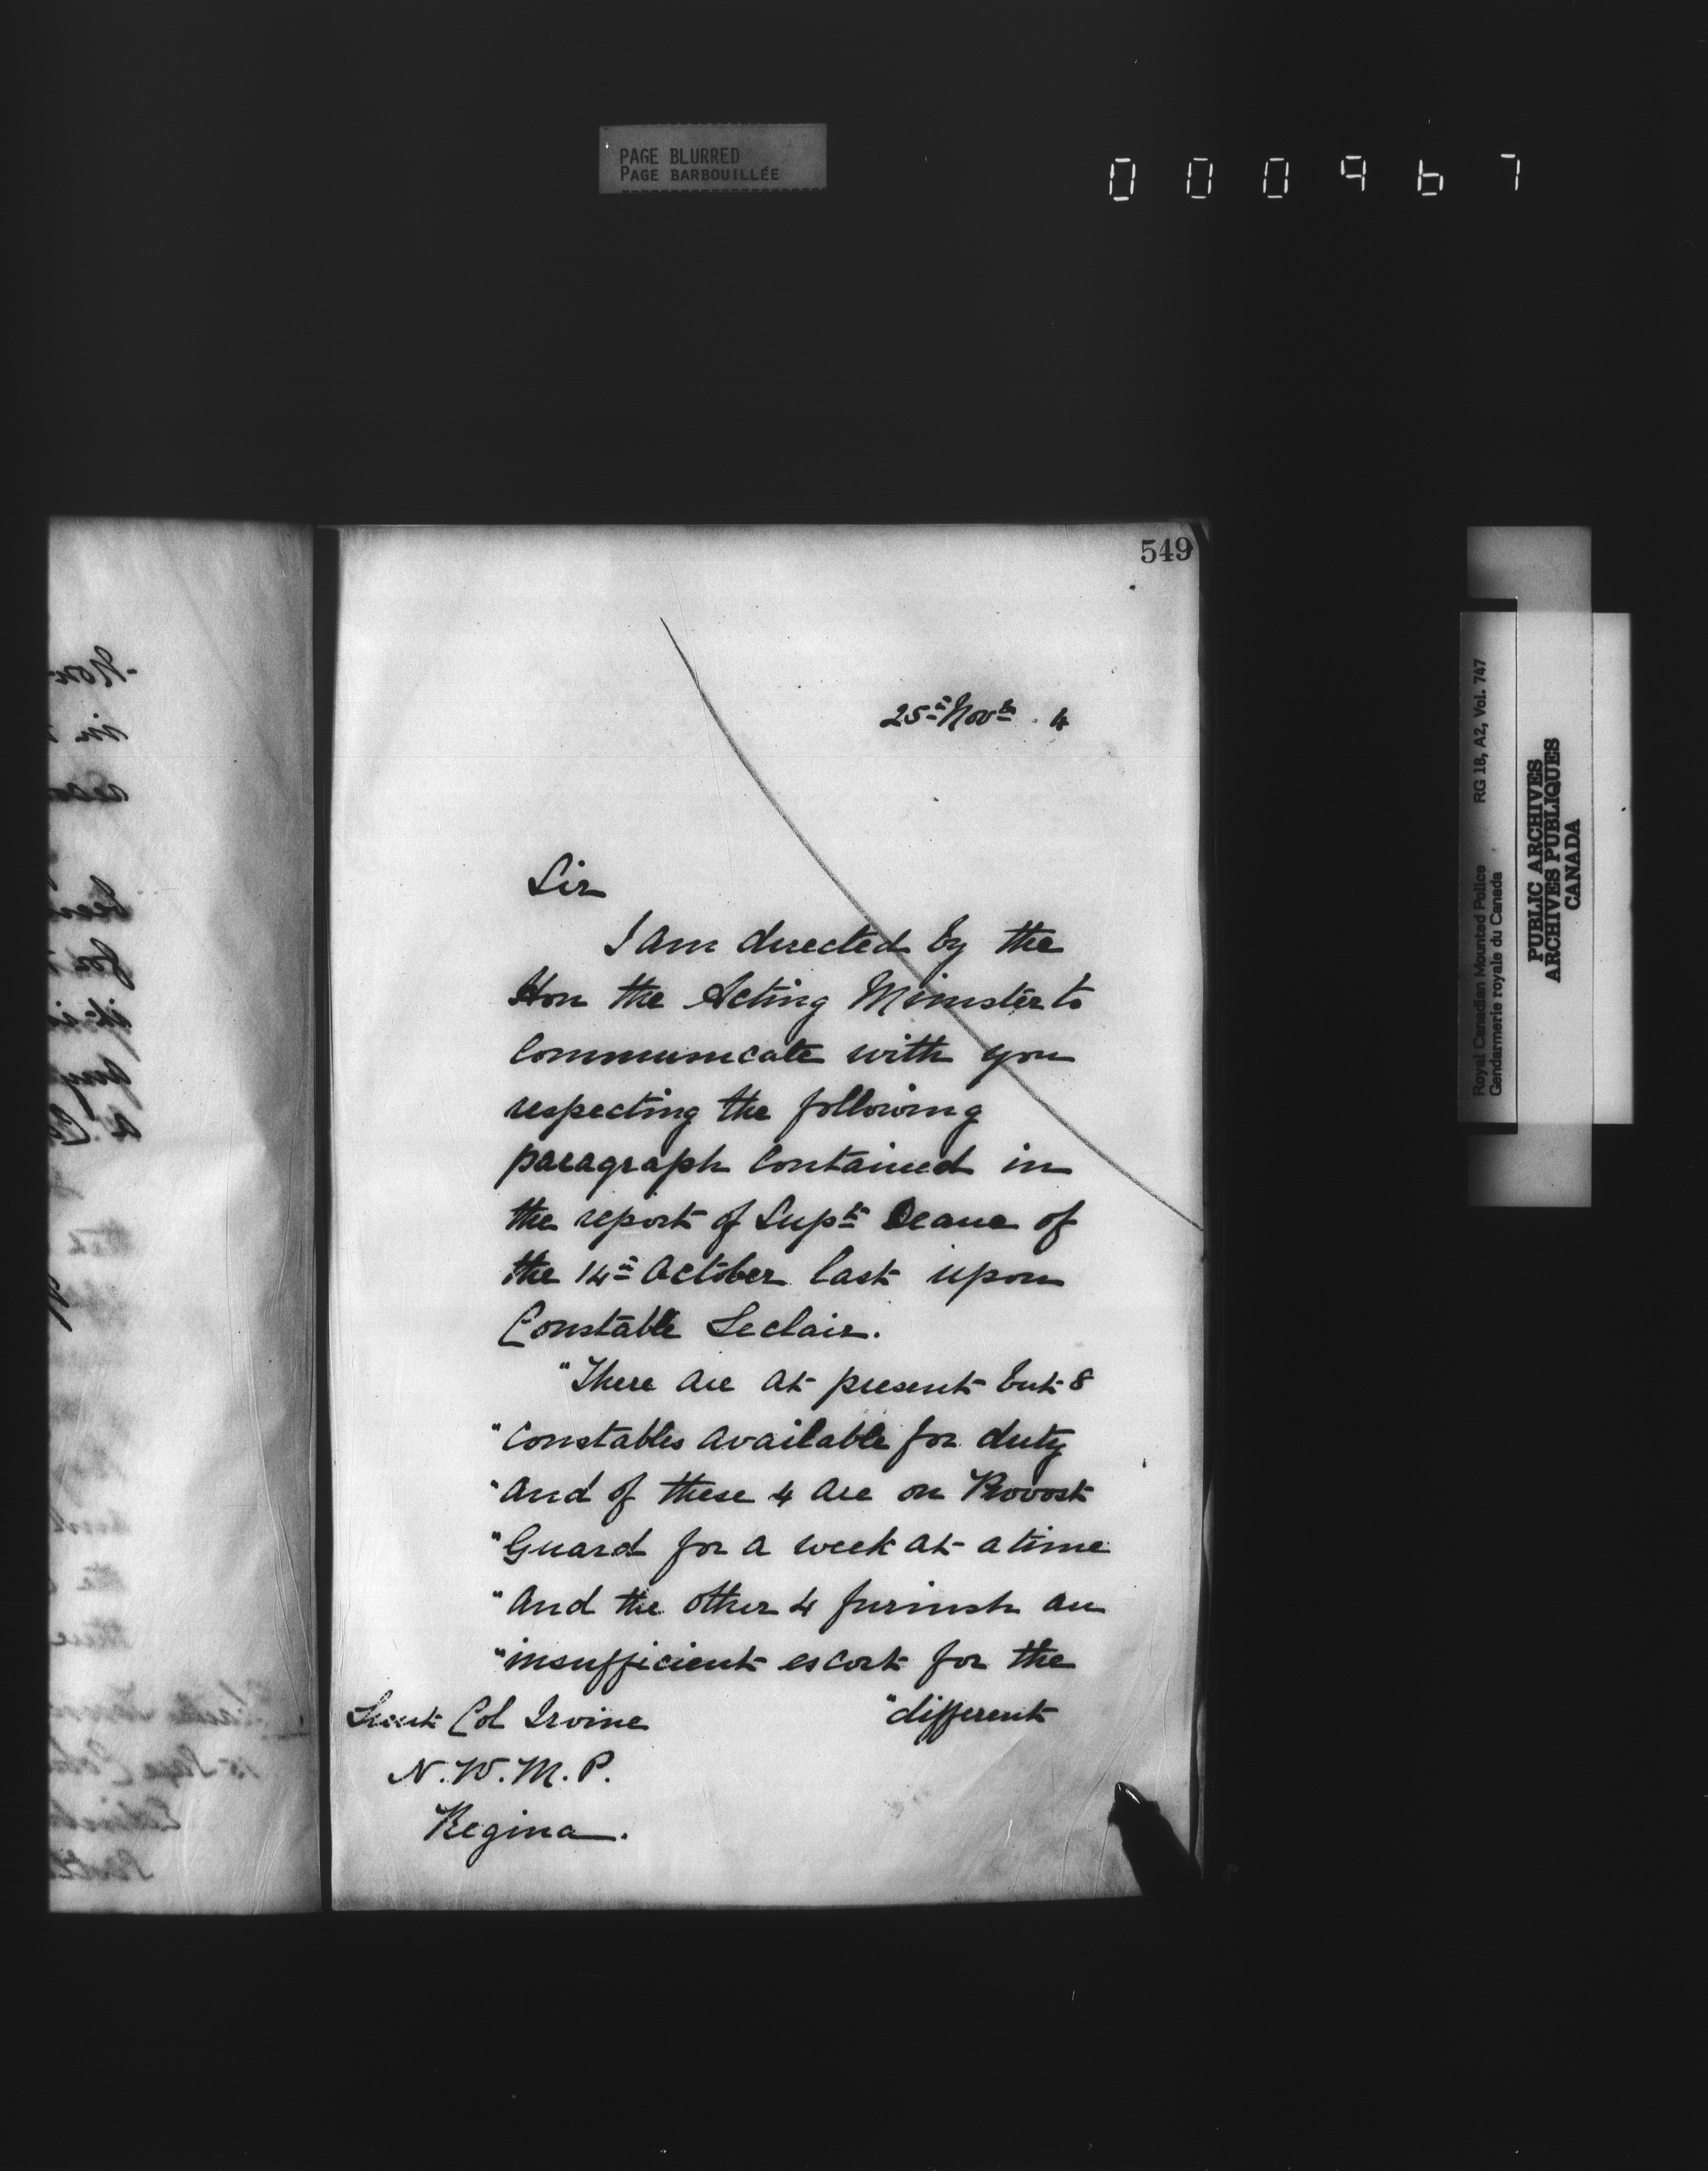 PAGE BLURRED
PAGE BARBOUILLÉE
000967
549
25th Novr. 4
Sir
I am directed by the
Hon the Acting Minister to
communicate with you
respecting the following
paragraph contained in
the report of Supt Deane of
the 14th October last upon
Constable Leclair.
"There are at present but 8
"constables available for duty
"and of these 4 are on Provost
"Guard for a week at a time
"and the other 4 furnish an
"insufficient escort for the
"different
Lieut Col Irvine
N.W.M.P.
Regina.
Royal Canadian Mounted Police RG 18, A2, Vol. 747
Gendarmerie royale du Canada
PUBLIC ARCHIVES
ARCHIVES PUBLIQUES
CANADA